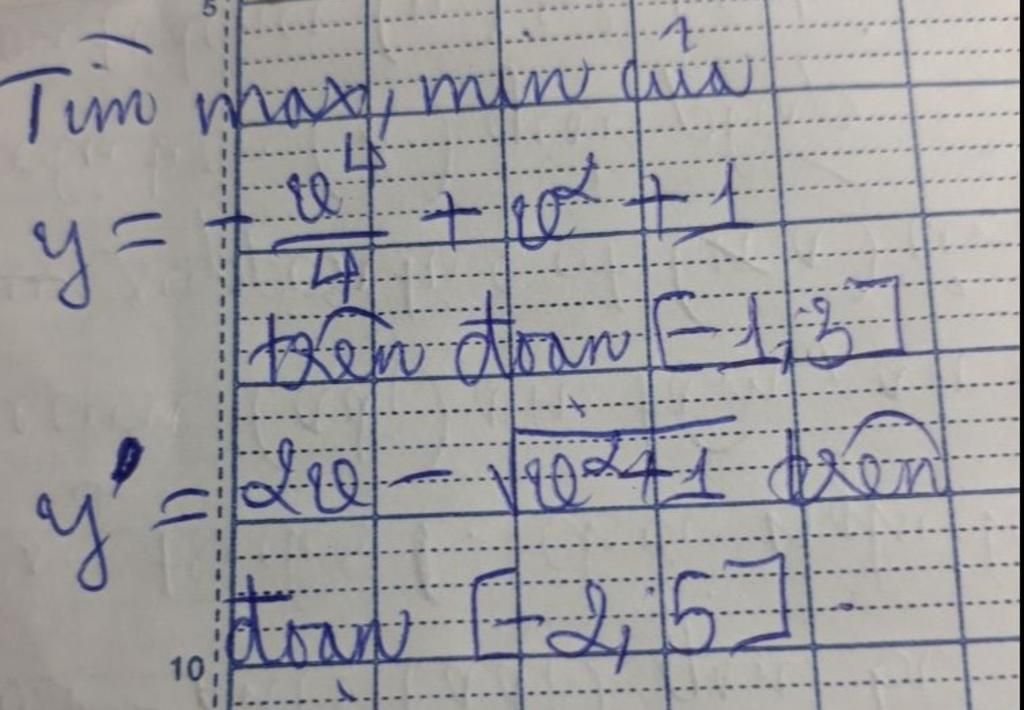 5
Tìm max, min của
y = - x⁴/4 + x² + 1
trên đoạn [-1, 3]
y' = 2x - √x²+1 trên
đoạn [-2, 5].
10